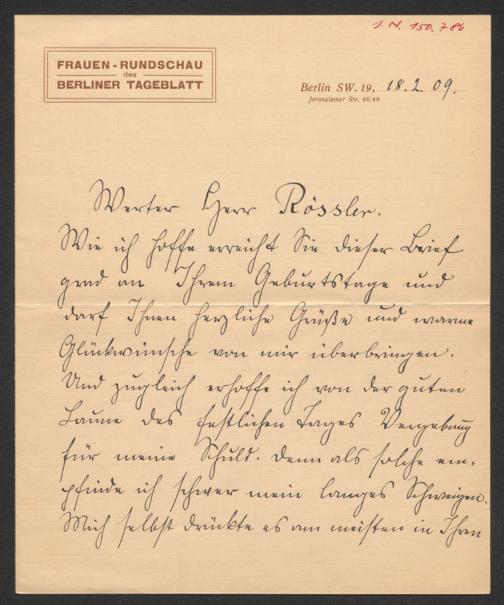 J. N. 150.786
FRAUEN-RUNDSCHAU
des
BERLINER TAGEBLATT
Berlin SW. 19, 18.2.09.
Jerusalemer Str. 46/49
Werter Herr Rössler.
Wie ich hoffe erreicht Sie dieser Brief
grad an Ihrem Geburtstage und
darf Ihnen herzliche Grüße und warme
Glückwünsche von mir überbringen.
Und zugleich erhoffe ich von der guten
Laune des festlichen Tages Vergebung
für meine Schuld. Denn als solche em-
pfinde ich schwer mein langes Schweigen.
Mich selbst drückte es am meisten in Ihren